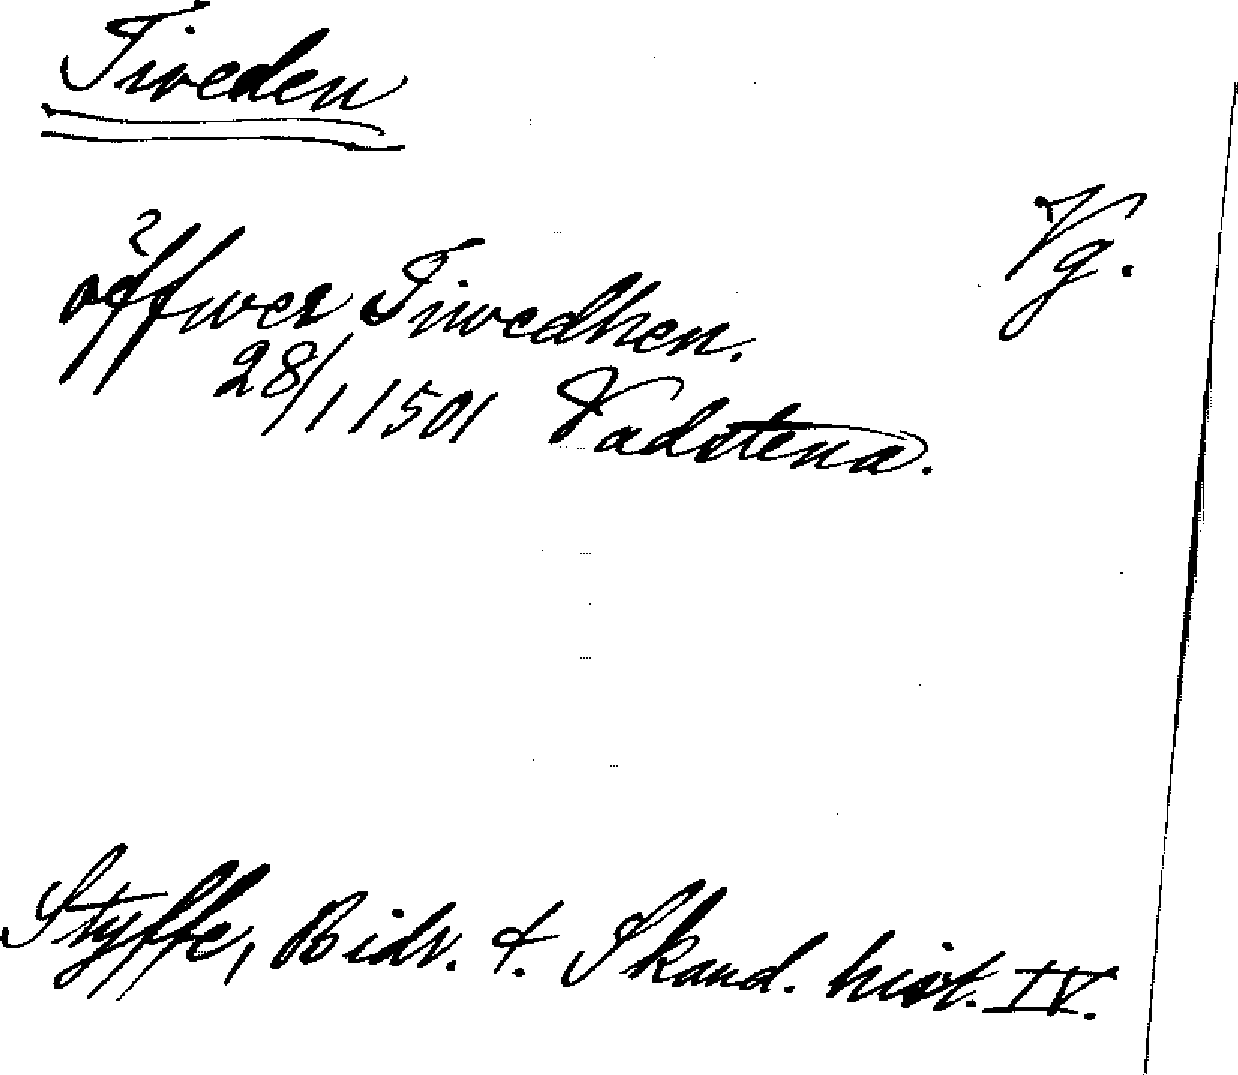 Tiveden
Vg.
öffwer Tiwedhen.
28/1 1501 Vadstena.
Styffe, Bidr. t. Skand. hist. IV.